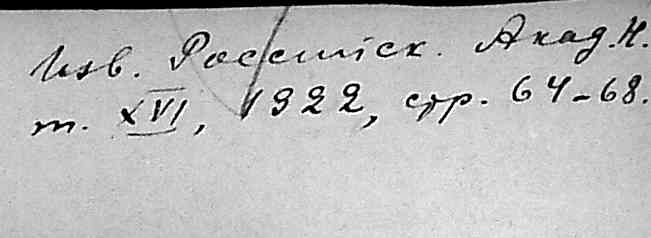 Изв. Россійск. Акад. Н.
т. XVI, 1922, стр. 64-68.